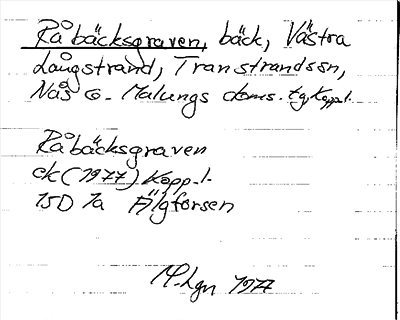 Råbäcksgraven, bäck, Västra
Långstrand, Transtrandssn,
Nås o. Malungs doms. tg, Kopp. l.
Råbäcksgraven
ek (1977) Kopp. l.
15D 1a Älgforsen
1977